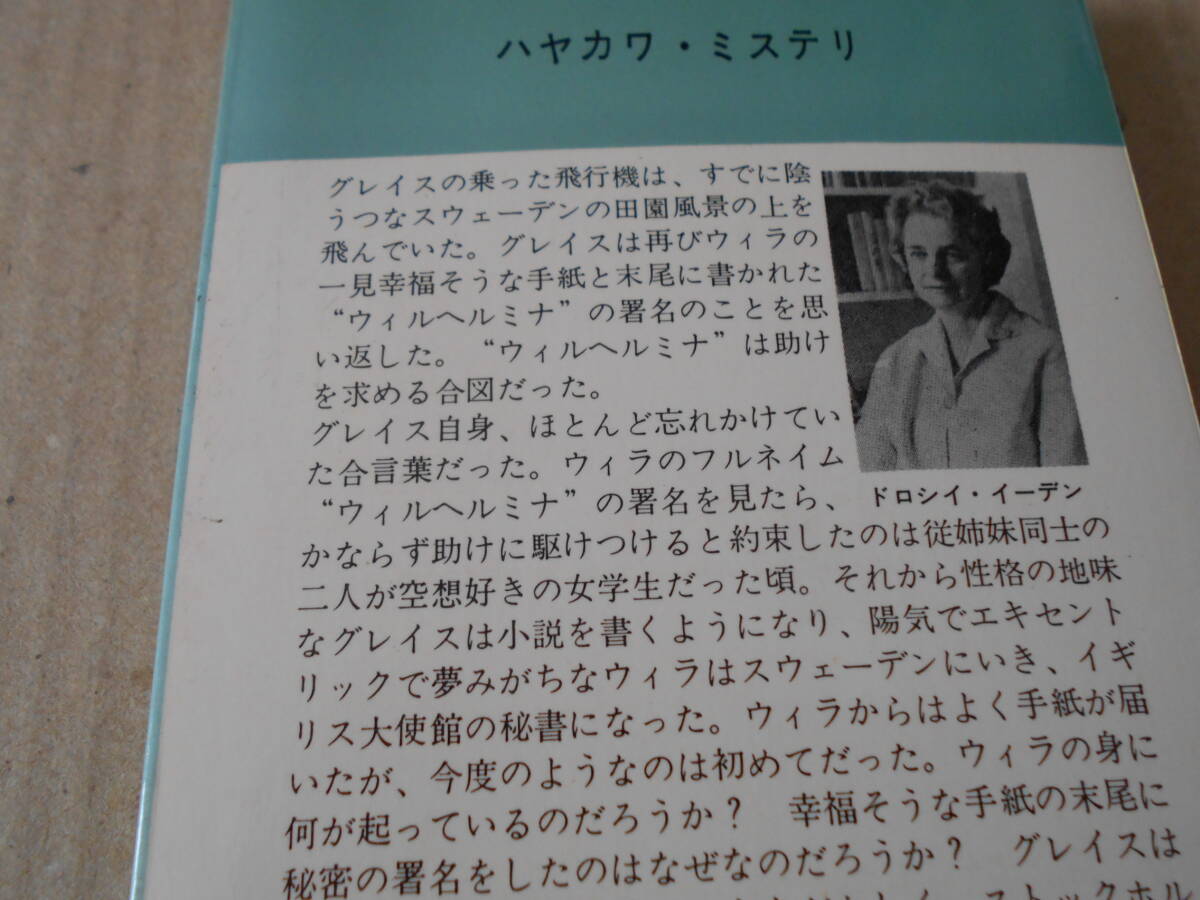 ハヤカワ・ミステリ
グレイスの乗った飛行機は、すでに陰
うつなスウェーデンの田園風景の上を
飛んでいた。グレイスは再びウィラの
一見幸福そうな手紙と末尾に書かれた
“ウィルヘルミナ”の署名のことを思
い返した。“ウィルヘルミナ”は助け
を求める合図だった。
グレイス自身、ほとんど忘れかけてい
た合言葉だった。ウィラのフルネイム
“ウィルヘルミナ”の署名を見たら、
ドロシイ・イーデン
かならず助けに駆けつけると約束したのは従姉妹同士の
二人が空想好きの女学生だった頃。それから性格の地味
なグレイスは小説を書くようになり、陽気でエキセント
リックで夢みがちなウィラはスウェーデンにいき、イギ
リス大使館の秘書になった。ウィラからはよく手紙が届
いたが、今度のようなのは初めてだった。ウィラの身に
何が起っているのだろうか？　幸福そうな手紙の末尾に
秘密の署名をしたのはなぜなのだろうか？　グレイスは
ストックホル